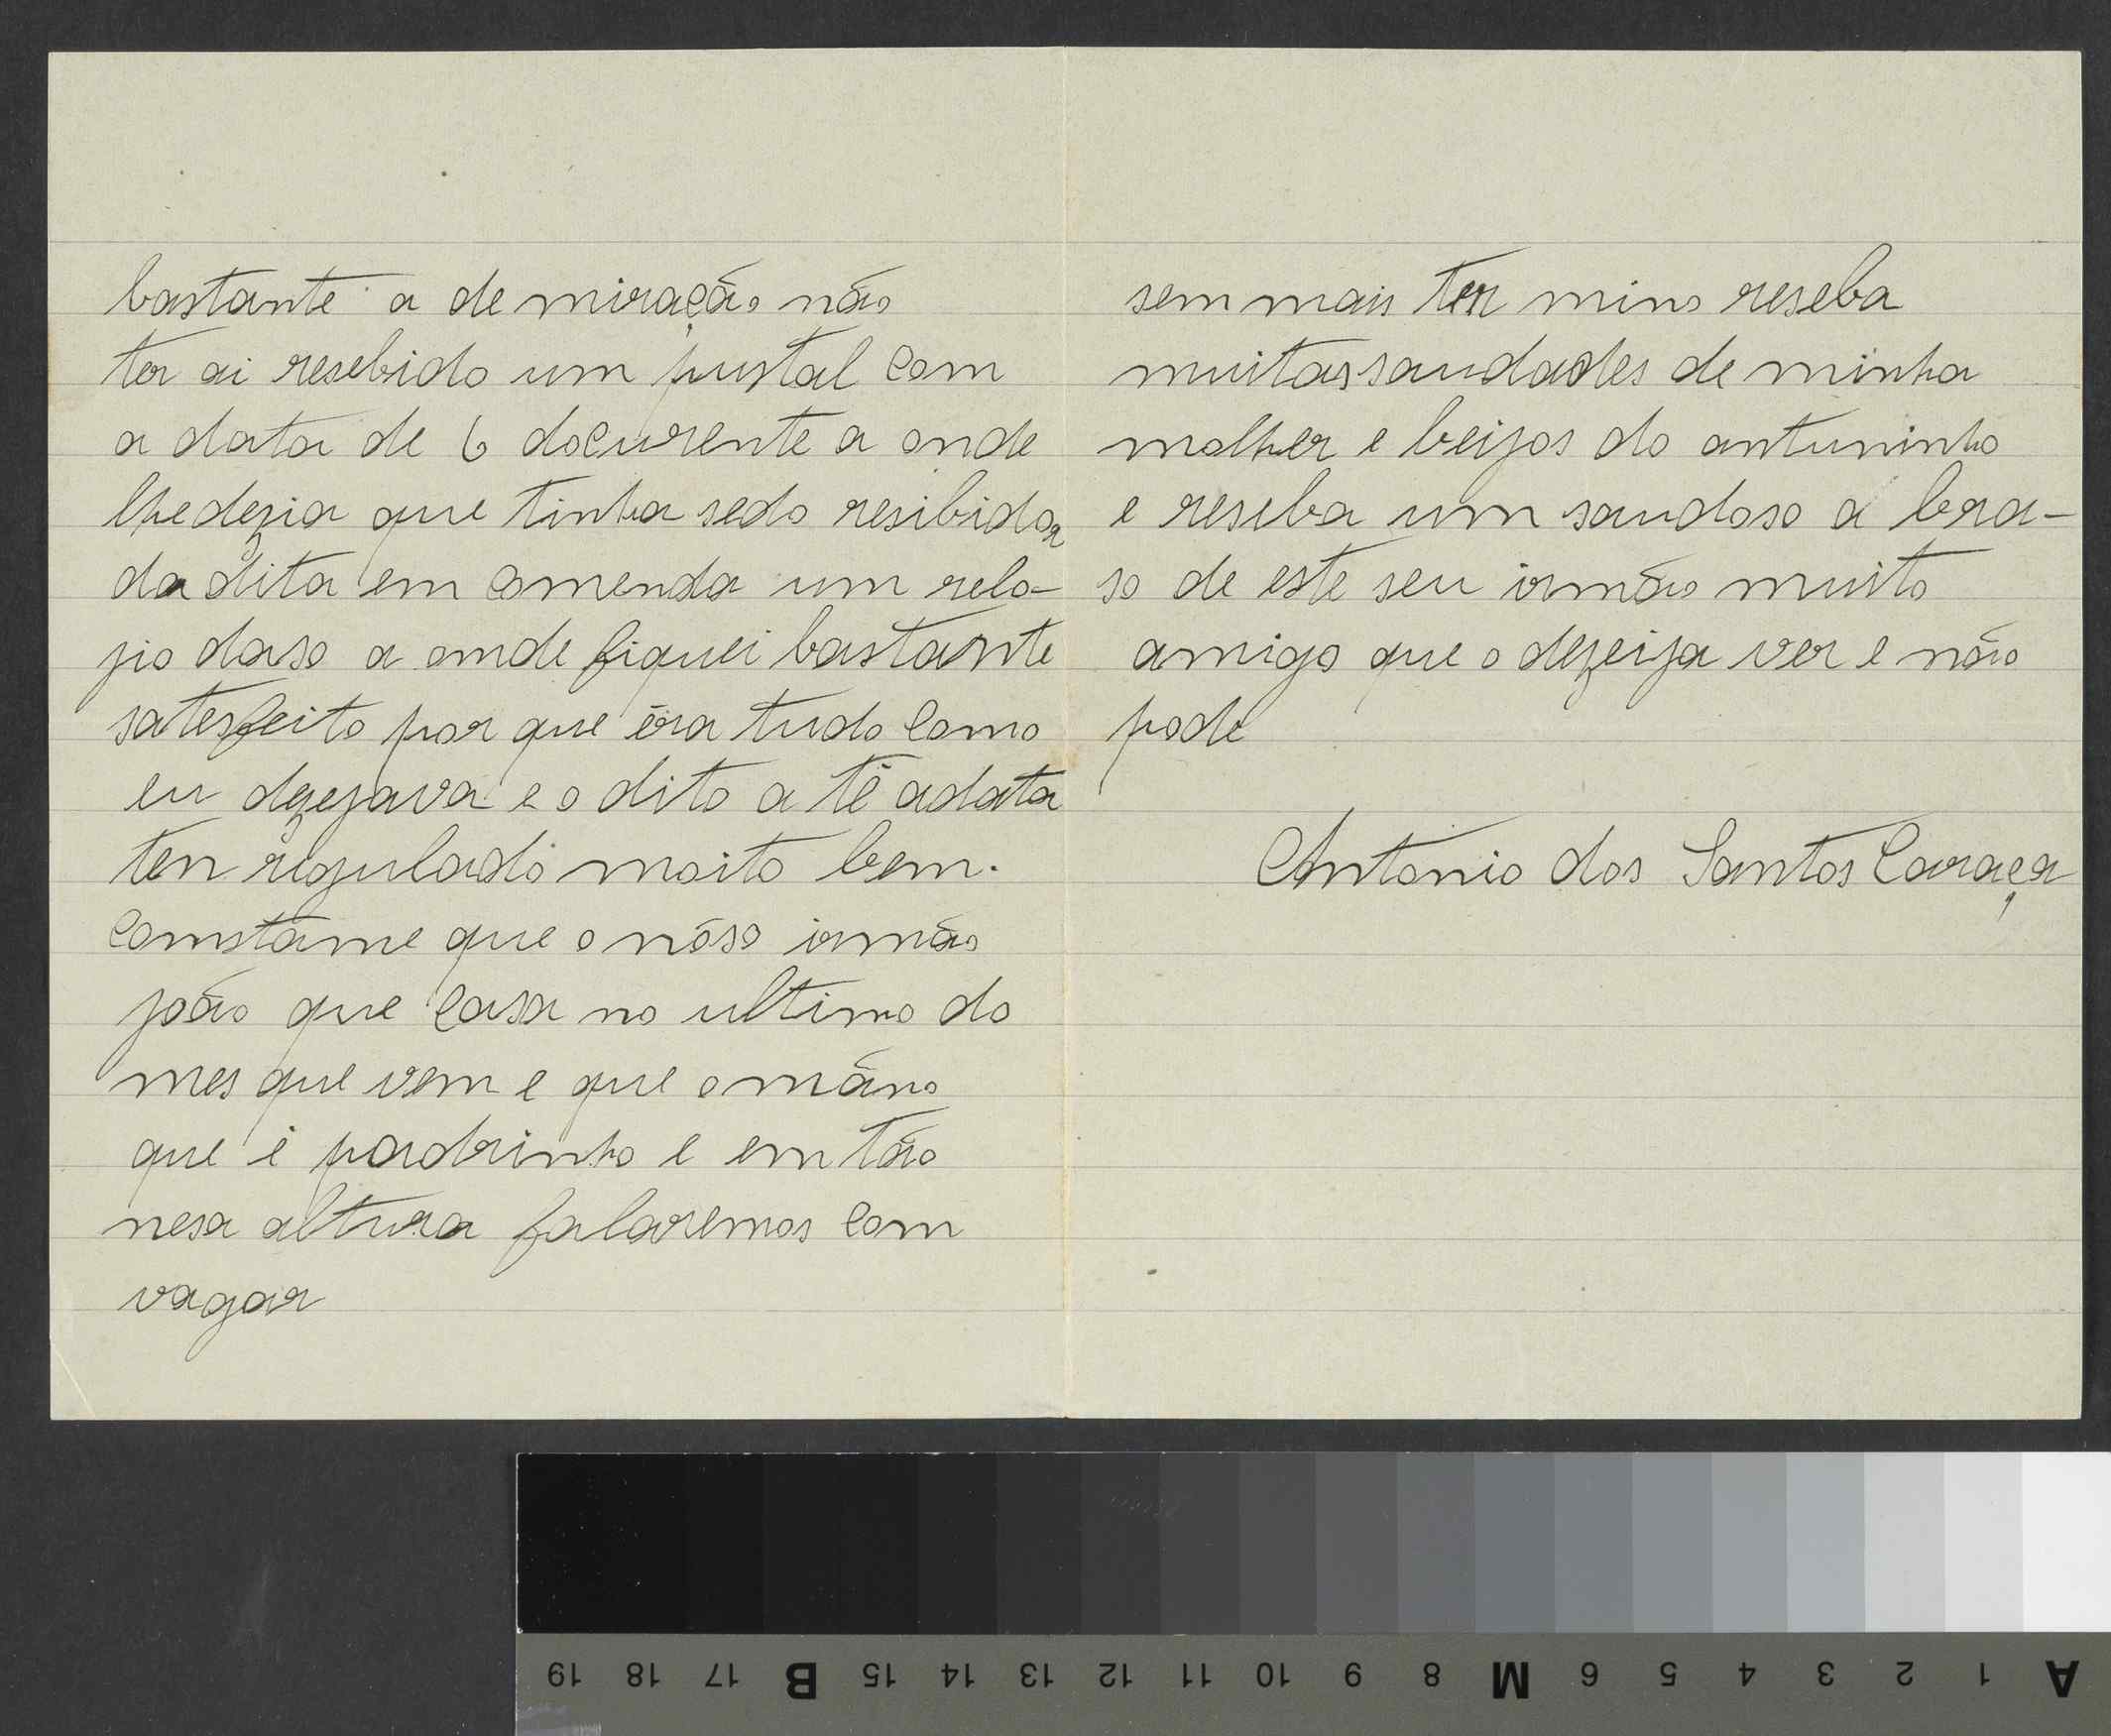 bastante a de miração não
ter ai resebido um pustal com
a data de 6 docurente a onde
lhedezia que tinha sedo resibidor
da dita em comenda um relo-
jio daso a onde fiquei bastante
satesfeito por que éra tudo como
eu dezejava e o dito a té adata
ten rigulado moito bem.
comstame que o nóso irmão
joão que casa no ultimo do
mes que vem e que o mãno
que é padrinho e em tão
nesa altura falaremos com
vagar
sem mais ter mino reseba
muitas saudades de minha
molher e beijos do antuninho
e reseba um saudoso a bra-
so de este seu irmão muito
amigo que o dezeija ver e não
pode
Antonio dos Santos Caraça
19 18 17 B 15 14 13 12 11 10 9 8 M 6 5 4 3 2 1 A